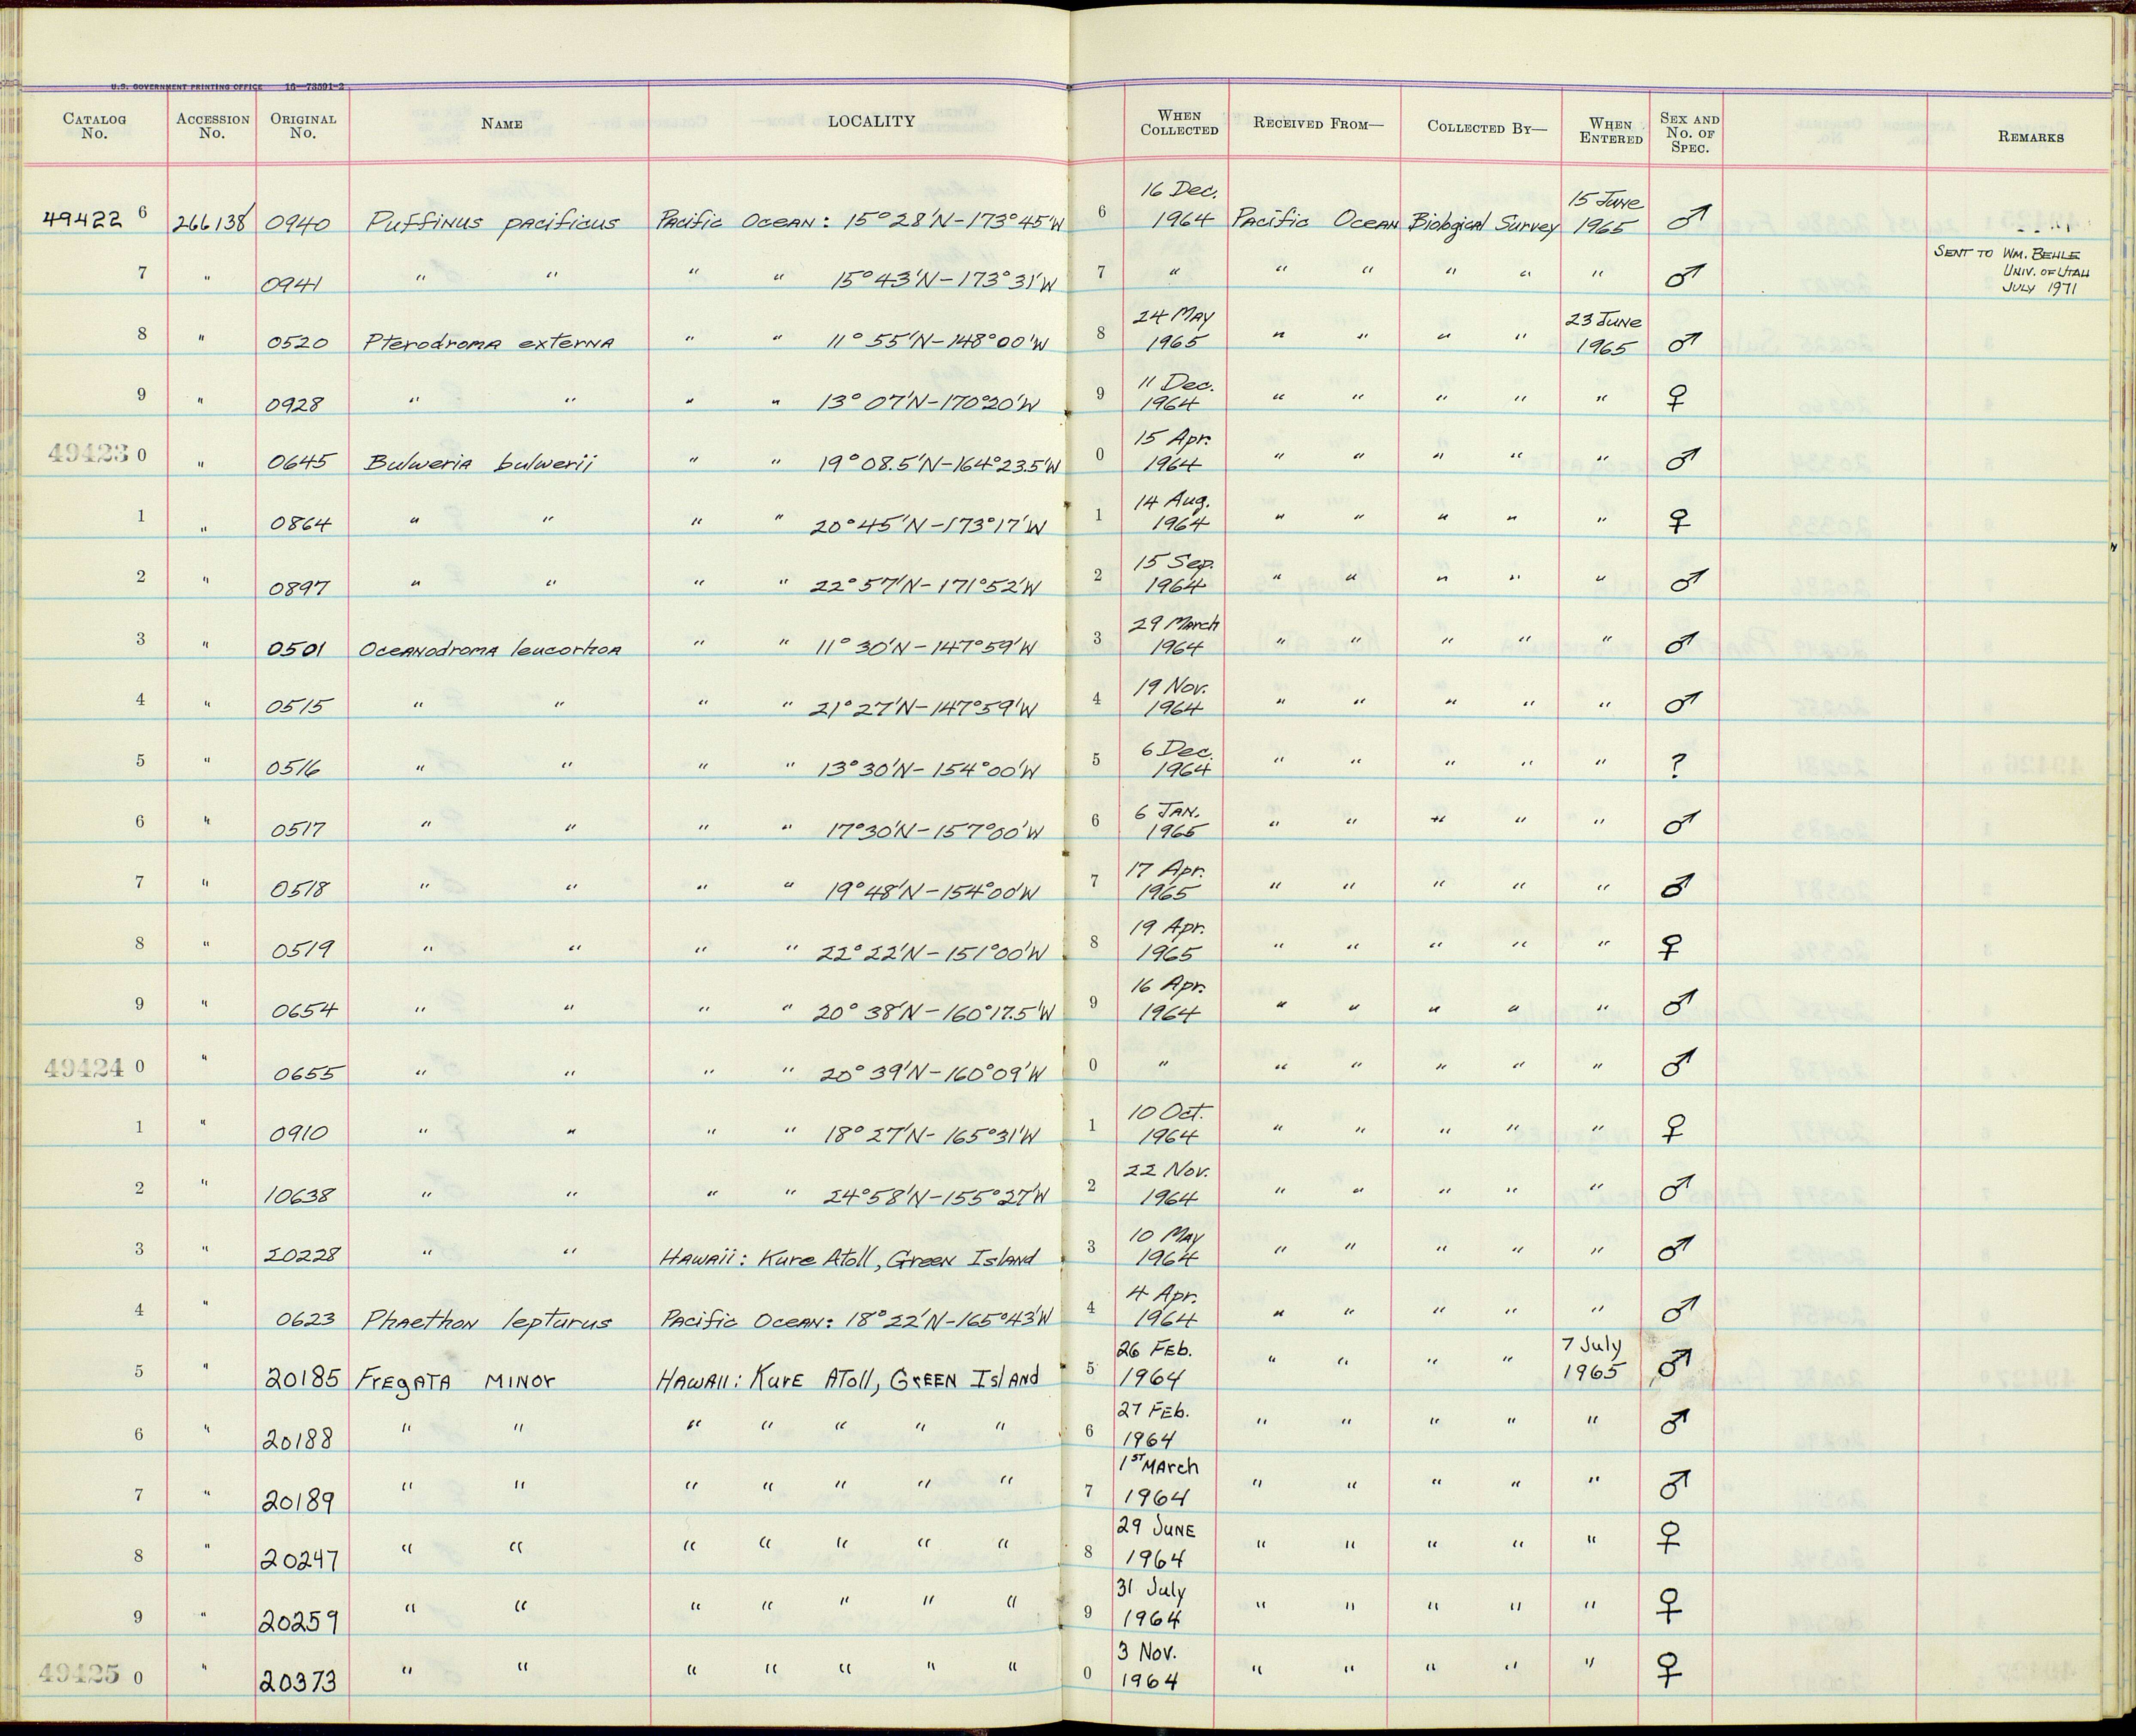 U.S. GOVERNMENT PRINTING OFFICE 16—73591-2
CATALOG No. ACCESSION No. ORIGINAL No. NAME LOCALITY WHEN COLLECTED RECEIVED FROM— COLLECTED BY— WHEN ENTERED SEX AND No. OF SPEC. REMARKS
49422 6 266138 0940 Puffinus pacificus Pacific Ocean: 15°28'N-173°45'W 6 16 Dec. 1964 Pacific Ocean Biological Survey 15 June 1965 ♂
7 " 0941 " " " " 15°43'N-173°31'W 7 " " " " " " ♂ SENT TO WM. BEHLE UNIV. OF UTAH JULY 1971
8 " 0520 Pterodroma externa " " 11°55'N-148°00'W 8 24 May 1965 " " " " 23 June 1965 ♂
9 " 0928 " " " " 13°07'N-170°20'W 9 11 Dec. 1964 " " " " " ♀
49423 0 " 0645 Bulweria bulwerii " " 19°08.5'N-164°23.5'W 0 15 Apr. 1964 " " " " " ♂
1 " 0864 " " " " 20°45'N-173°17'W 1 14 Aug. 1964 " " " " " ♀
2 " 0897 " " " " 22°57'N-171°52'W 2 15 Sep. 1964 " " " " " ♂
3 " 0501 Oceanodroma leucorhoa " " 11°30'N-147°59'W 3 29 March 1964 " " " " " ♂
4 " 0515 " " " " 21°27'N-147°59'W 4 19 Nov. 1964 " " " " " ♂
5 " 0516 " " " " 13°30'N-154°00'W 5 6 Dec. 1964 " " " " " ?
6 " 0517 " " " " 17°30'N-157°00'W 6 6 Jan. 1965 " " " " " ♂
7 " 0518 " " " " 19°48'N-154°00'W 7 17 Apr. 1965 " " " " " ♂
8 " 0519 " " " " 22°22'N-151°00'W 8 19 Apr. 1965 " " " " " ♀
9 " 0654 " " " " 20°38'N-160°17.5'W 9 16 Apr. 1964 " " " " " ♂
49424 0 " 0655 " " " " 20°39'N-160°09'W 0 " " " " " " ♂
1 " 0910 " " " " 18°27'N-165°31'W 1 10 Oct. 1964 " " " " " ♀
2 " 10638 " " " " 24°58'N-155°27'W 2 22 Nov. 1964 " " " " " ♂
3 " 20228 " " Hawaii: Kure Atoll, Green Island 3 10 May 1964 " " " " " ♂
4 " 0623 Phaethon lepturus Pacific Ocean: 18°22'N-165°43'W 4 4 Apr. 1964 " " " " " ♂
5 " 20185 Fregata minor Hawaii: Kure Atoll, Green Island 5 26 Feb. 1964 " " " " 7 July 1965 ♂
6 " 20188 " " " " " " " 6 27 Feb. 1964 " " " " " ♂
7 " 20189 " " " " " " " 7 1st March 1964 " " " " " ♂
8 " 20247 " " " " " " " 8 29 June 1964 " " " " " ♀
9 " 20259 " " " " " " " 9 31 July 1964 " " " " " ♀
49425 0 " 20373 " " " " " " " 0 3 Nov. 1964 " " " " " ♀